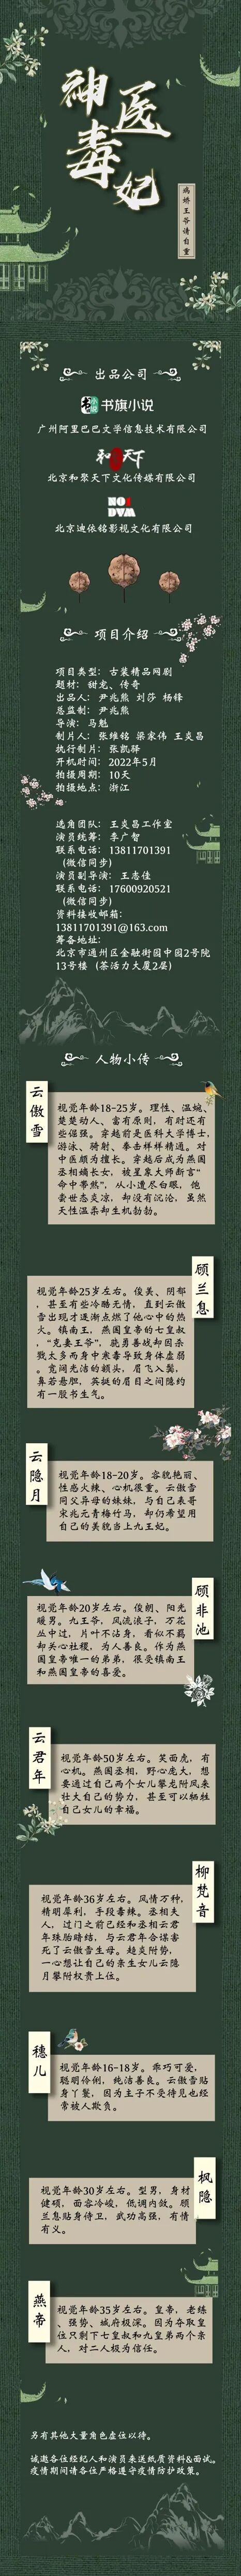 神医
毒妃
病娇王爷请自重
出品公司
书旗小说
广州阿里巴巴文学信息技术有限公司
和 天下
北京和聚天下文化传媒有限公司
北京迪依铭影视文化有限公司
项目介绍
项目类型：古装精品网剧
题材：甜宠、传奇
出品人：尹兆熊 刘莎 杨锋
总监制：尹兆熊
导演：马魁
制片人：张维铭 梁家伟 王炎昌
执行制片：张凯驿
开机时间：2022年5月
拍摄周期：10天
拍摄地点：浙江
选角团队：王炎昌工作室
演员统筹：李广智
联系电话：13811701391
（微信同步）
演员副导演：王志佳
联系电话：17600920521
（微信同步）
资料接收邮箱：
13811701391@163.com
筹备地址：
北京市通州区金融街园中园2号院
13号楼（茶活力大厦2层）
人物小传
云傲雪
视觉年龄18-25岁。理性、温婉、
楚楚动人、富有原则，有时还有
些倔强。穿越前是医科大学博士，
游泳、骑射、拳击样样精通。对
中医颇为擅长。穿越后成为燕国
丞相嫡长女，被星象大师断言“
命中带煞”，从小遭尽白眼，饱
尝世态炎凉，却没有沉沦，虽然
天性温柔却生机勃勃。
顾兰息
视觉年龄25岁左右。俊美、阴郁
，甚至有些冷酷无情，直到云傲
雪出现才逐渐点燃了他心中的热
火。镇南王，燕国皇帝的七皇叔
，“克妻王爷”，骁勇善战却因杀
戮太多而身中来毒导致身体虚弱
。宽阔光洁的额头，眉飞入鬓，
鼻若悬胆，英挺的眉目之间隐约
有一股书生气。
云隐月
视觉年龄18-20岁。容貌艳丽、
性感火辣、心机很重。云傲雪
同父异母的妹妹，与自己表哥
宋兆元青梅竹马，却仍希望用
自己的美貌当上九王妃。
顾非池
视觉年龄20岁左右。俊朗、阳光
暖男。九王爷，风流浪子，万花
丛中过，片叶不沾身，看似不羁
却关心社稷，为人善良。作为燕
国皇帝唯一的弟弟，很受镇南王
和燕国皇帝的喜爱。
云君年
视觉年龄50岁左右。笑面虎，有
心机。燕国丞相，野心庞大，想
要通过自己两个女儿攀龙附凤来
壮大自己的势力，甚至可以牺牲
自己女儿的幸福。
柳梵音
视觉年龄36岁左右。风情万种，
精明犀利，手段毒辣。丞相夫
人，过门之前已经和丞相云君
年珠胎暗结，与云君年合谋害
死了云傲雪生母。趋炎附势，
一心想让自己的亲生女儿云隐
月攀附权贵上位。
穗儿
视觉年龄16-18岁。乖巧可爱，
聪明伶俐，纯洁善良。云傲雪贴
身丫鬟，因为主子不受待见也经
常被人欺负。
枫隐
视觉年龄30岁左右。型男，身材
健硕，面容冷峻，低调内敛。顾
兰息贴身侍卫，武功高强，有情
有义。
燕帝
视觉年龄35岁左右。皇帝，老练
、强势、城府极深。因为夺取皇
位只剩下七皇叔和九皇弟两个亲
人，对二人极为信任。
另有其他大量角色虚位以待。
诚邀各位经纪人和演员来送纸质资料&面试。
疫情期间请各位严格遵守疫情防护政策。